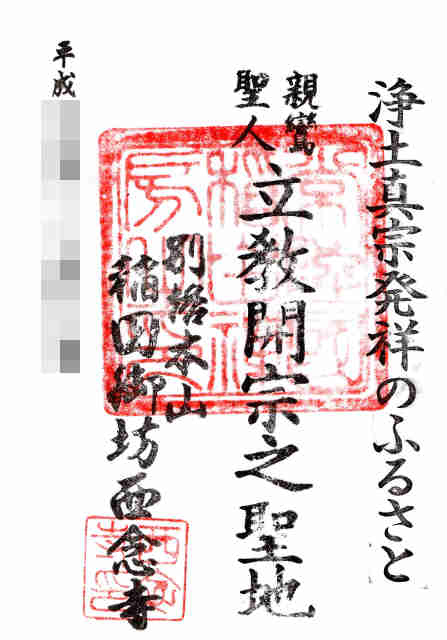 浄土真宗発祥のふるさと
親鸞
聖人
立教開宗之聖地
別格本山
稲田御坊西念寺
平成